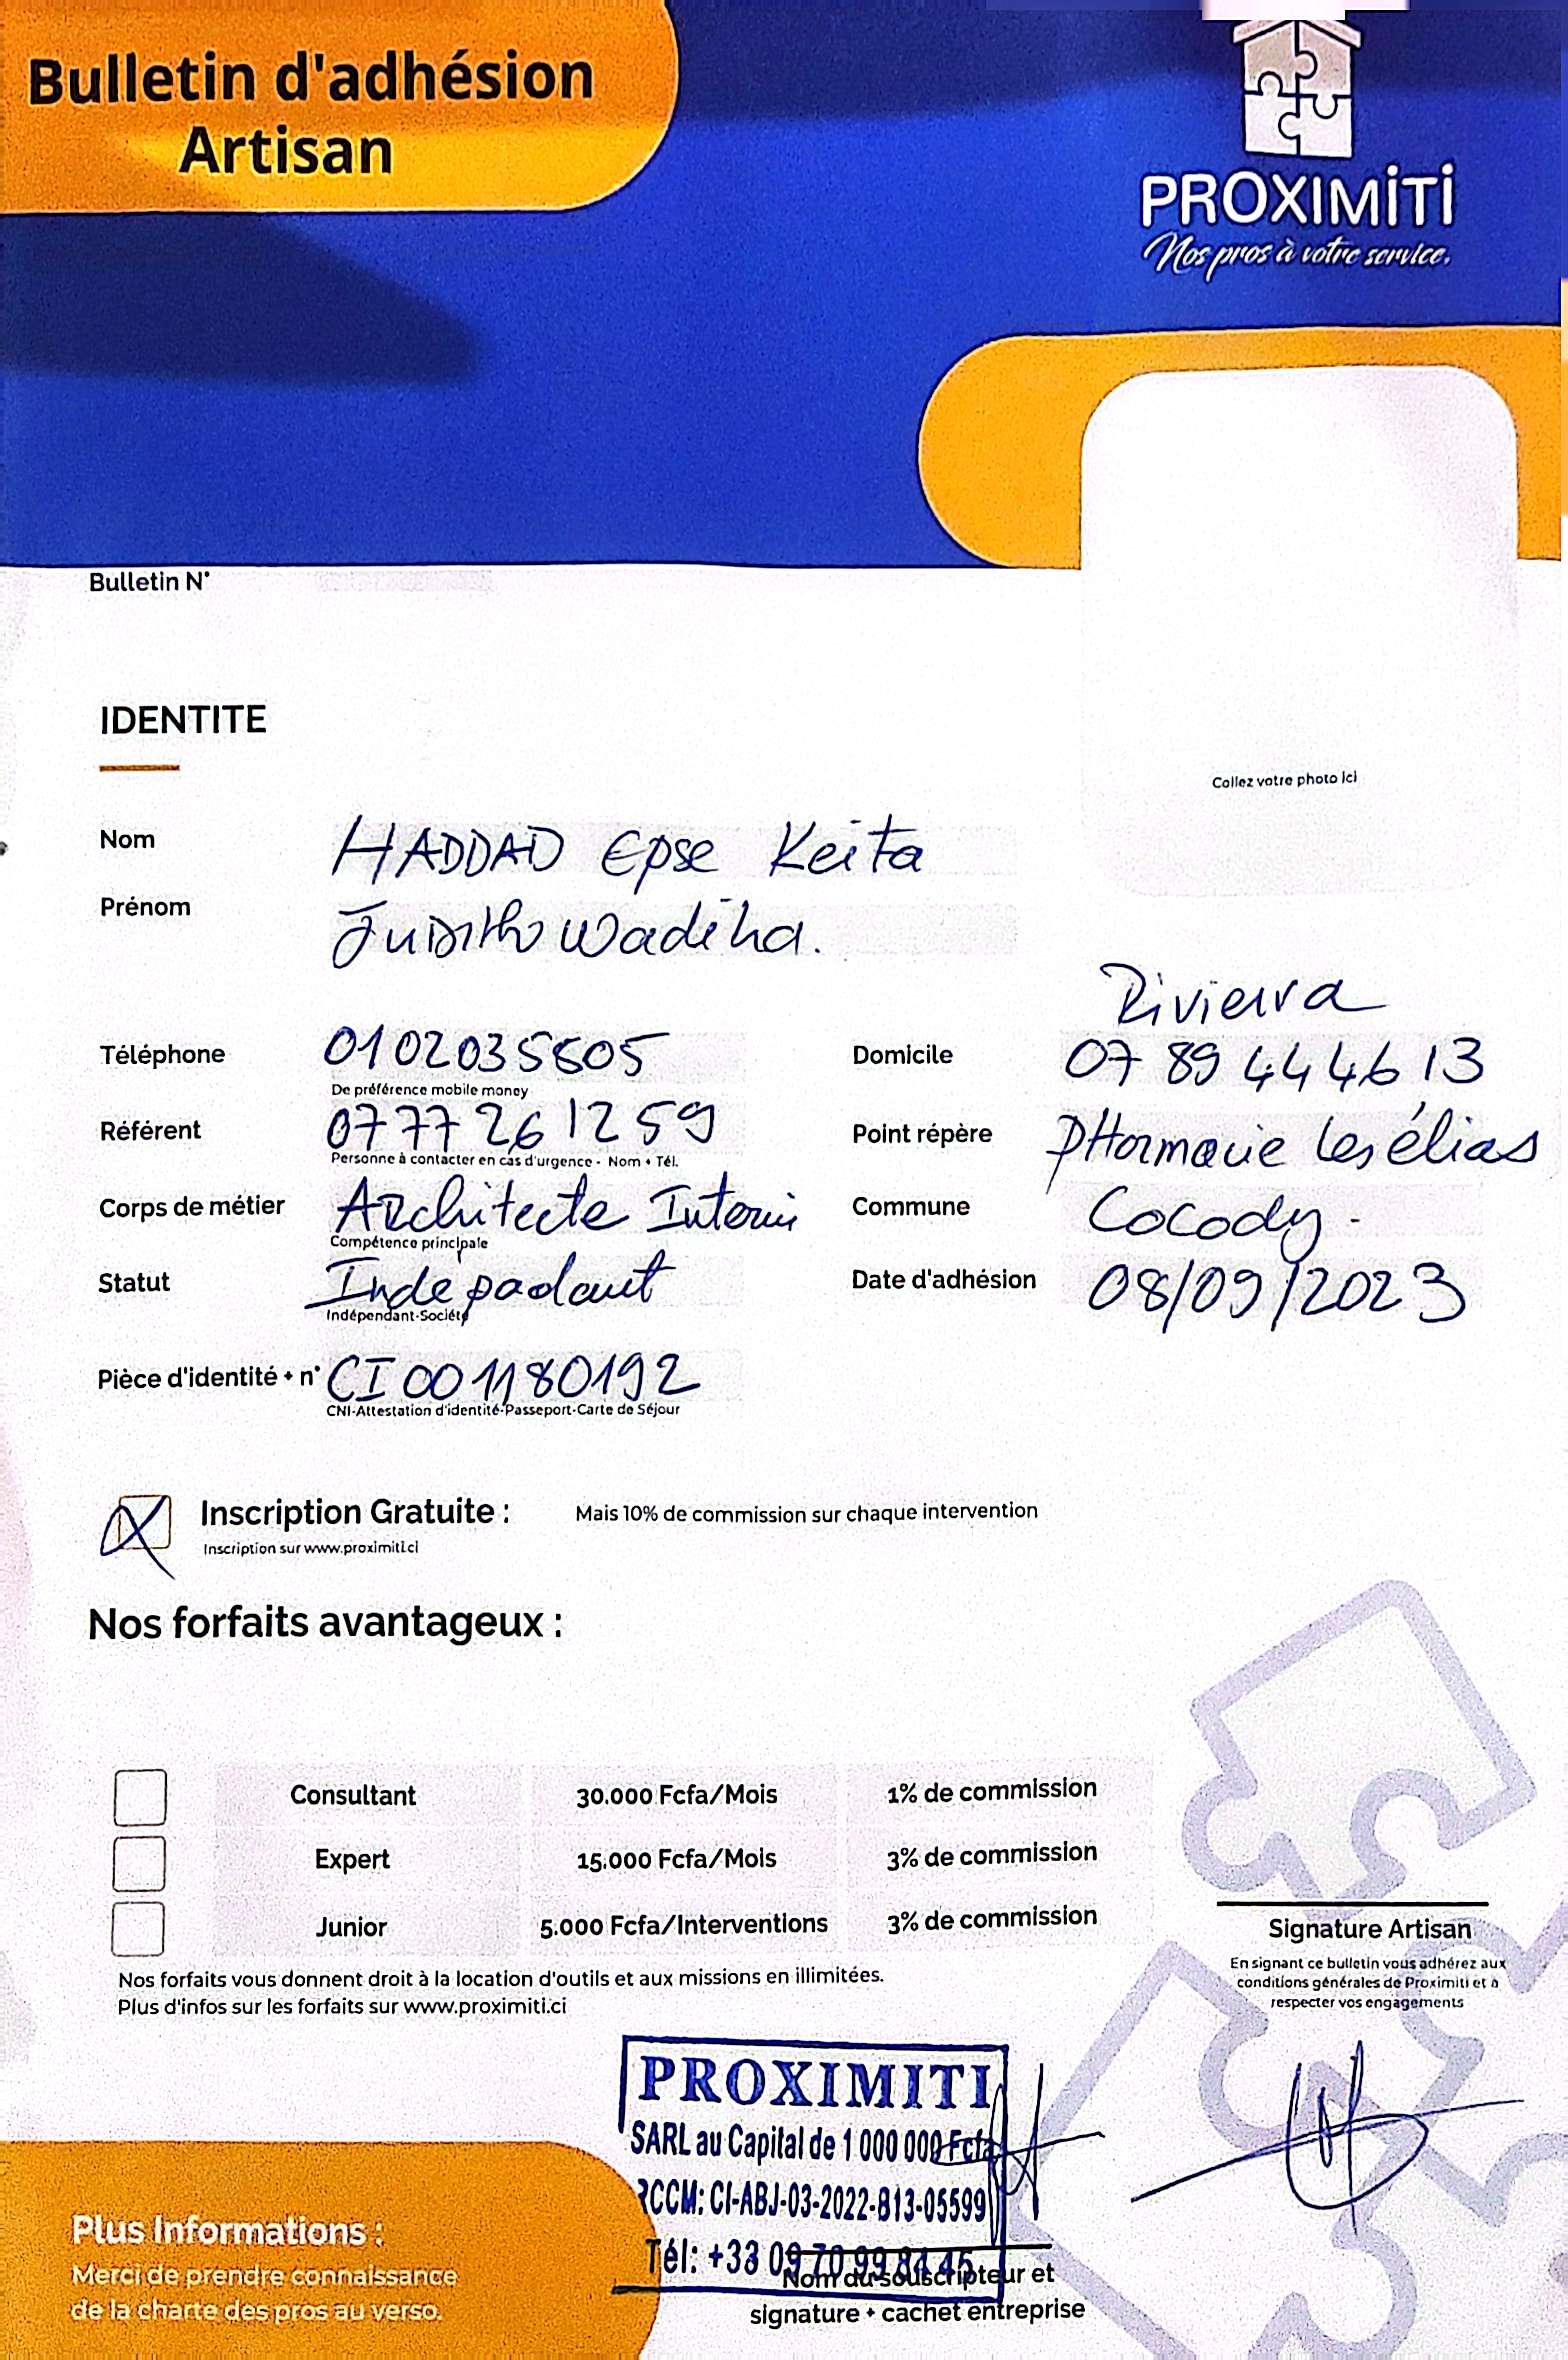 Bulletin d'adhésion
Artisan
PROXIMITI
Nos pros à votre service.
Bulletin N°
IDENTITE
Collez votre photo ici
Nom HADDAD Epse Keita
Prénom Judith Wadiha.
Rivierra
Téléphone 0102035505 Domicile 07 89 44 46 13
De préférence mobile money
Référent 07 77 26 12 59 Point répère PHarmacie les élias
Personne à contacter en cas d'urgence - Nom + Tél.
Corps de métier Architecte Interin Commune Cocody.
Compétence principale
Statut Indépadant Date d'adhésion 08/09/2023
Indépendant-Société
Pièce d'identité + n° CI 001180192
CNI-Attestation d'identité-Passeport-Carte de Séjour
Inscription Gratuite : Mais 10% de commission sur chaque intervention
Inscription sur www.proximiti.ci
Nos forfaits avantageux :
Consultant 30.000 Fcfa/Mois 1% de commission
Expert 15.000 Fcfa/Mois 3% de commission
Junior 5.000 Fcfa/Interventions 3% de commission
Nos forfaits vous donnent droit à la location d'outils et aux missions en illimitées.
Plus d'infos sur les forfaits sur www.proximiti.ci
Signature Artisan
En signant ce bulletin vous adhérez aux
conditions générales de Proximiti et à
respecter vos engagements
PROXIMITI
SARL au Capital de 1 000 000 Fcfa
RCCM: CI-ABJ-03-2022-B13-05599
Tél: +33 09 70 99 84 45
Nom du souscripteur et
signature + cachet entreprise
Plus Informations :
Merci de prendre connaissance
de la charte des pros au verso.